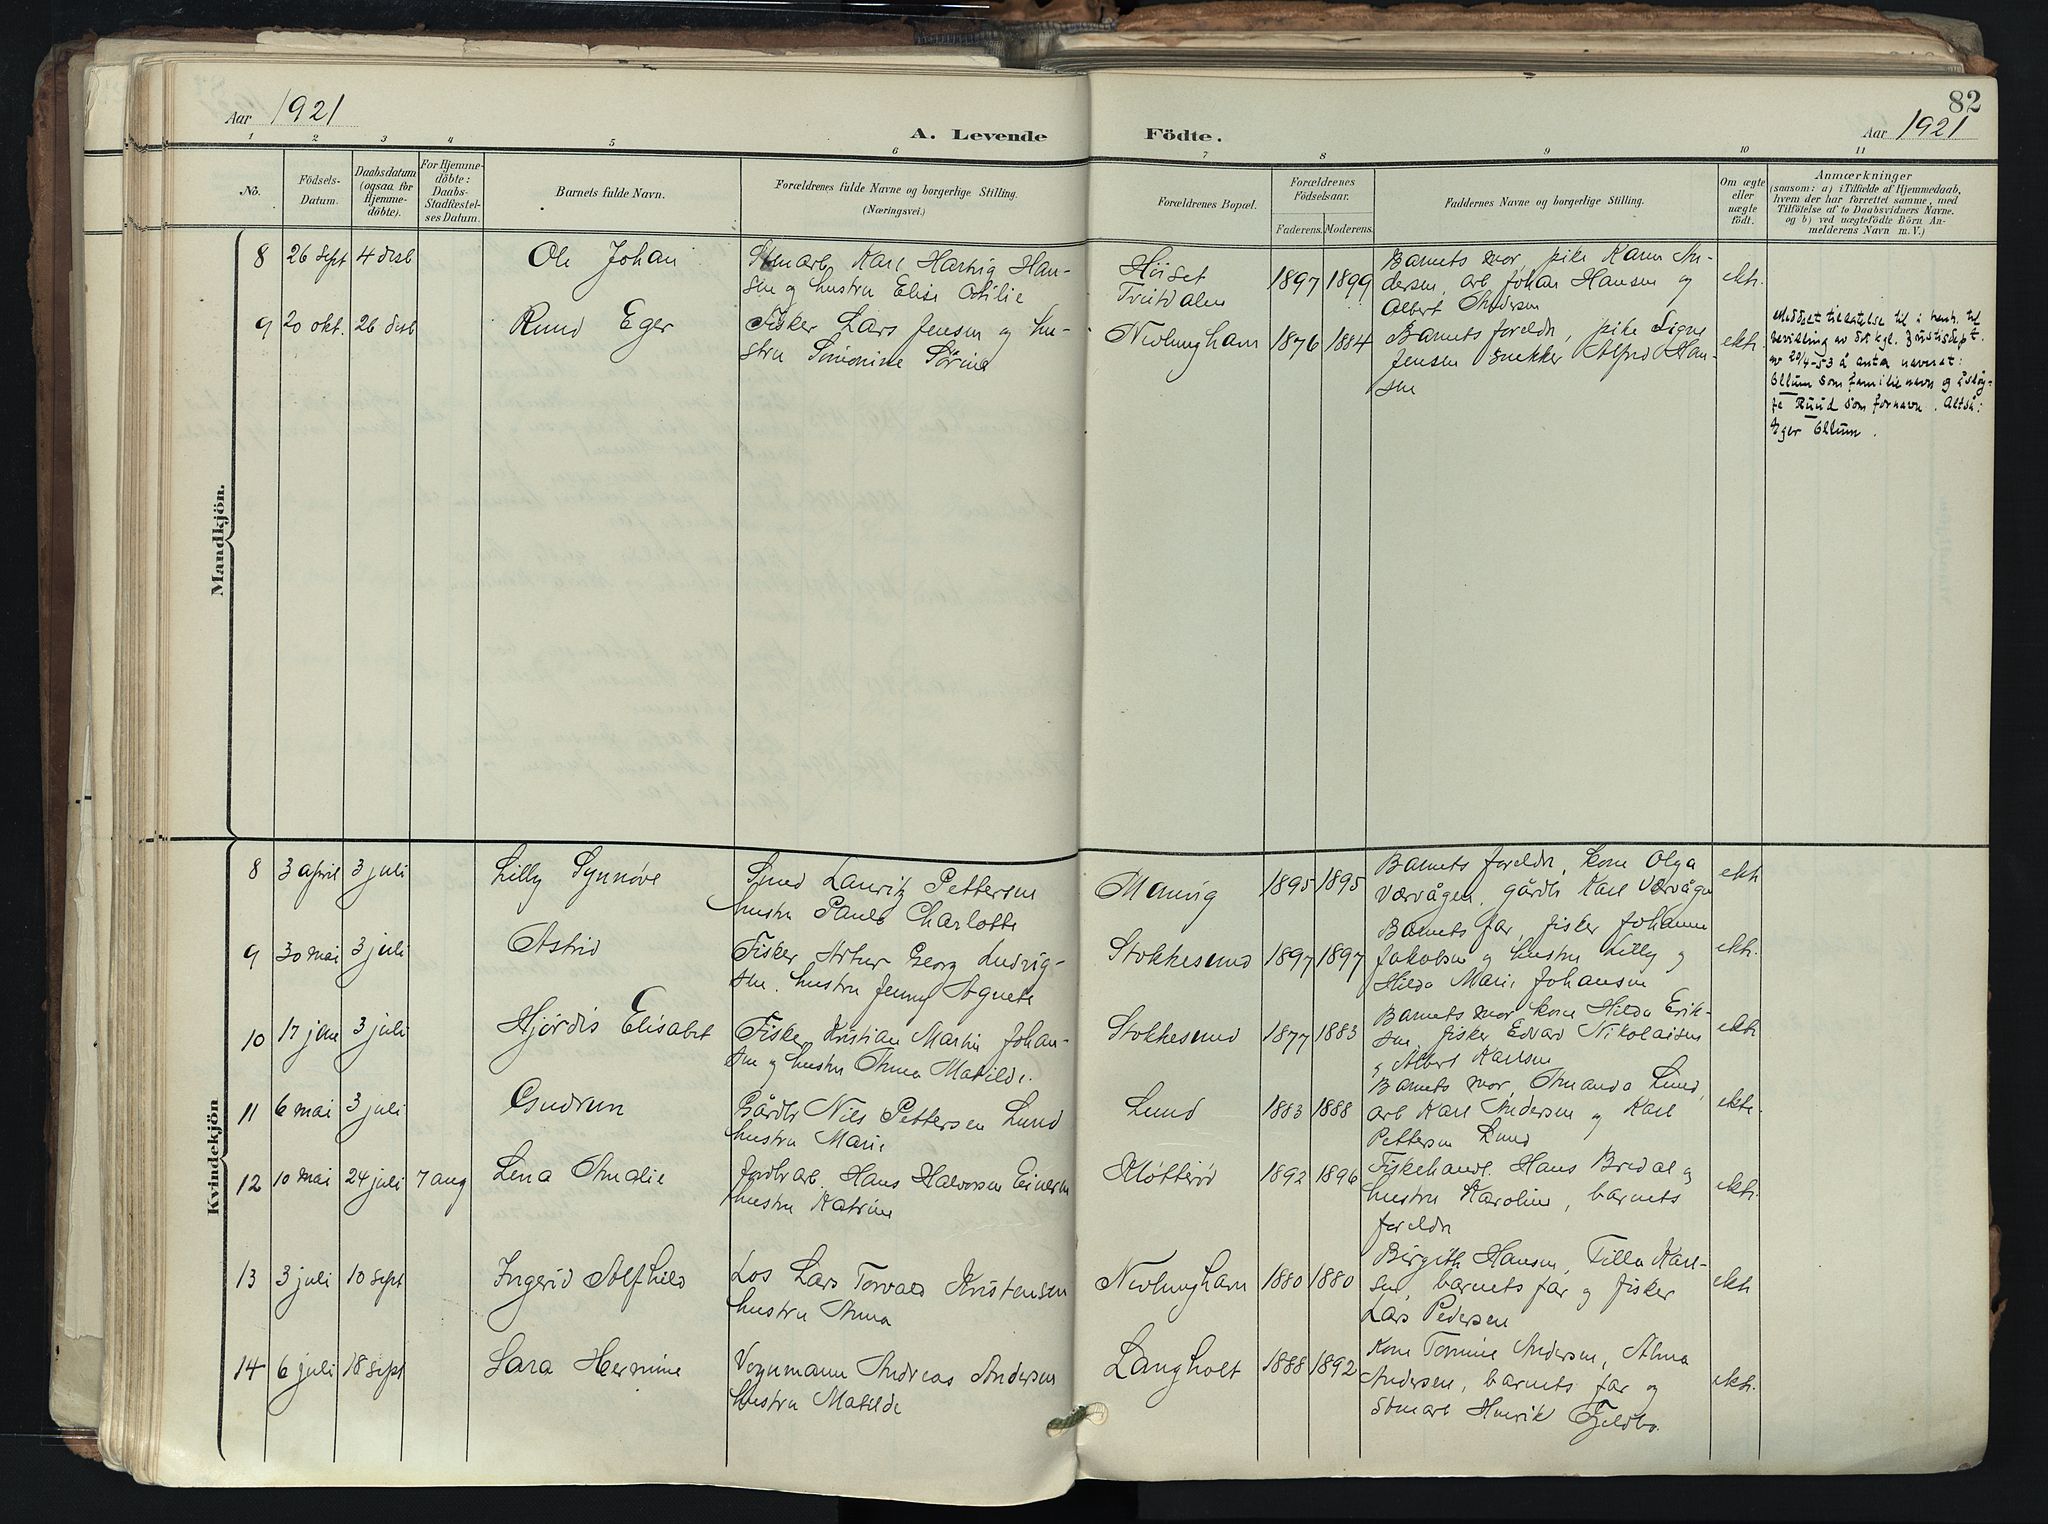 82
Aar 1921
A. Levende Födte.
Aar 1921
1 2 3 4 5 6 7 8 9 10 11
No.
Födsels-
Datum.
Daabsdatum
(ogsaa for
Hjemme-
döbte).
For Hjemme-
döbte:
Daabs-
Stadfæstel-
ses Datum.
Barnets fulde Navn.
Forældrenes fulde Navne og borgerlige Stilling.
(Næringsvei.)
Forældrenes Bopæl.
Forældrenes
Födselsaar.
Faderens. Moderens.
Faddernes Navne og borgerlige Stilling.
Om ægte
eller
uægte
födt.
Anmærkninger
(saasom: a) i Tilfælde af Hjemmedaab,
hvem der har forrettet samme, med
Tilföielse af to Daabsvidners Navne.
og b) ved uægtefödte Börn An-
melderens Navn m. V.)
Mandkjön.
8 26 sept 4 desb Ole Johan
Stenarb Karl Hartvig Han-
sen og hustru Elise Otilie
Höiset
Tveitdalen
1897 1899
Barnets mor, pike Karen An-
dersen, arb Johan Hansen og
Albert Andersen
ekte.
9 20 okt. 26 desb Ruud Eger
Fisker Lars Jensen og hu-
stru Simonine Sørine
Nevlunghavn
1876 1884
Barnets foreldre, pike Signe
Jensen snekker Alfred Han-
sen
ekte.
Meddelt tillatelse til i henh. til
bevilling av Det kgl. Justisdept.
av 20/4-53 å anta navnet:
Ellum som familienavn og å sløy-
fe Ruud som fornavn. Altså:
Eger Ellum.
Kvindekjön
8 3 april 3 juli Lilly Synnøve
Smed Lauritz Pettersen
hustru Paula Charlotte
1895 1895
Barnets foreldre, kone Olga
Værvågen, gårdbr Karl Værvågen
ekte
9 30 mai 3 juli Astrid
Fisker Artur Georg Ludvig-
sen. hustru Jenny Agnete
Stokkesund
1897 1897
Barnets far, fisker Johannes
Jakobsen og hustru Lilly og
Hilda Marie Johansen
ekte.
10 17 jan 3 juli Hjördis Elisabet
Fisker Kristian Martin Johan-
sen og hustru Anna Matilde.
Stokkesund
1877 1883
Barnets mor kone Hilda Erik-
sen, fisker Edvard Nikolaisen
og Albert Karlsen
ekte
11 6 mai 3 juli Gudrun
Gårdbr Nils Pettersen Lund
hustru Marie
Lund
1883 1888
Barnets mor, Amanda Lund,
arb Karl Andersen og Karl
Pettersen Lund
ekte.
12 10 mai 24 juli 7 aug Lena Amalie
Jordbrarb. Hans Halvorsen
hustru Katrine
Kløtterød
1892 1896
Fiskehandl. Hans Bredal og
hustru Karoline, barnets
foreldre
ekte.
13 3 juli 10 sept Ingerid Alfhild
Los Lars Torvald Kristensen
hustru Anna
Nevlunghavn
1880 1880
Birgith Hansen, Tilla Karl-
sen, barnets far og fisker
Lars Pedersen
ekte
14 6 juli 18 sept Sara Hermine
Vognmann Andreas Andersen
hustru Matilde
Langholt
1888 1892
Kone Tomine Andersen, Alma
Andersen, barnets far og
stenarb Henrik Fjeldbo.
ekte.